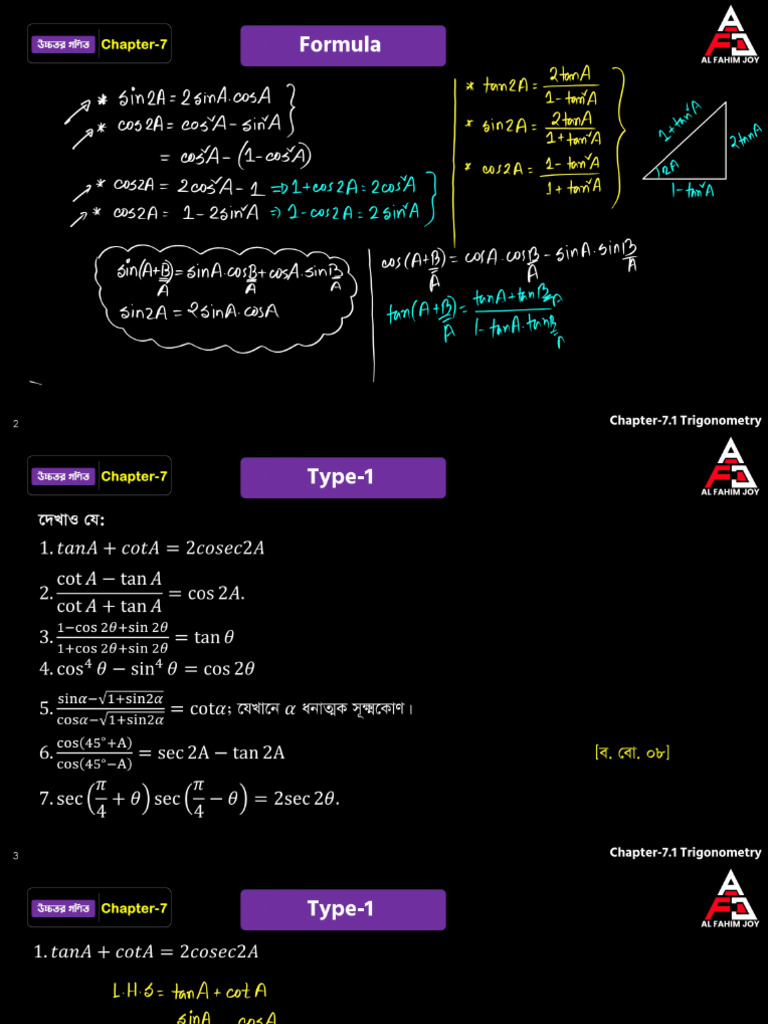 উচ্চতর গণিত Chapter-7
Formula
AL FAHIM JOY
* sin2A = 2 sinA.cosA
* cos2A = cos²A - sin²A
= cos²A - (1-cos²A)
* cos2A = 2cos²A - 1 ⇒ 1+cos2A = 2cos²A
* cos2A = 1 - 2sin²A ⇒ 1-cos2A = 2 sin²A
* tan2A = 2tanA / 1 - tan²A
* sin2A = 2tanA / 1 + tan²A
* cos2A = 1 - tan²A / 1 + tan²A
1+tan²A
2tanA
2A
1-tan²A
sin(A+B) = sinA.cosB + cosA.sinB
A A A
sin2A = 2 sinA.cosA
cos(A+B) = cosA.cosB - sinA.sinB
A A A
tan(A+B) = tanA + tanB / 1 - tanA.tanB
A A A
2
Chapter-7.1 Trigonometry
উচ্চতর গণিত Chapter-7
Type-1
AL FAHIM JOY
দেখাও যে:
1. tanA + cotA = 2cosec2A
2. cot A − tan A / cot A + tan A = cos 2A.
3. 1−cos 2θ+sin 2θ / 1+cos 2θ+sin 2θ = tan θ
4. cos⁴ θ − sin⁴ θ = cos 2θ
5. sinα−√1+sin2α / cosα−√1+sin2α = cotα; যেখানে α ধনাত্মক সূক্ষ্মকোণ।
6. cos(45°+A) / cos(45°−A) = sec 2A − tan 2A [ব. বো. ০৮]
7. sec(π/4 + θ) sec(π/4 − θ) = 2sec 2θ.
3
Chapter-7.1 Trigonometry
উচ্চতর গণিত Chapter-7
Type-1
AL FAHIM JOY
1. tanA + cotA = 2cosec2A
L.H.S = tanA + cotA
sinA cosA